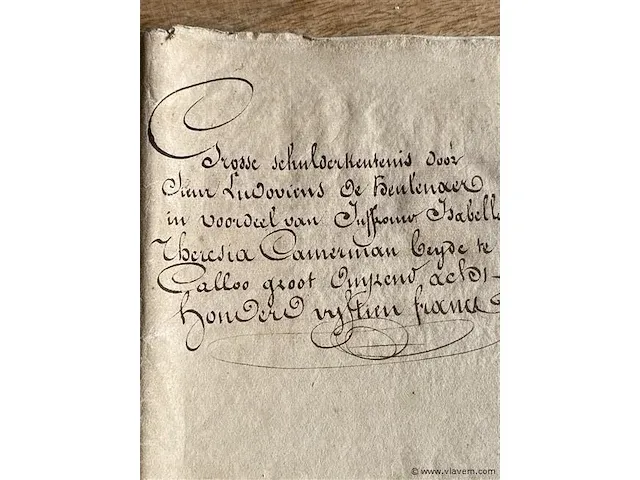 Grosse schulderkentenis door
Sieur Ludovicus de Heulenaer
in voordeel van Juffrouw Isabelle
Theresia Camerman beyde te
Calloo groot Duyzend acht-
honderd vyftien francs
© www.vlavem.com